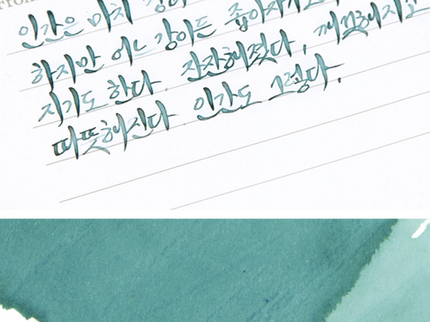 From
인간은 마치 강
하지만 어느 강이든 좁아지기도
지기도 한다. 잔잔해졌다, 깨끗해지고
따뜻해진다. 인간도 그렇다.